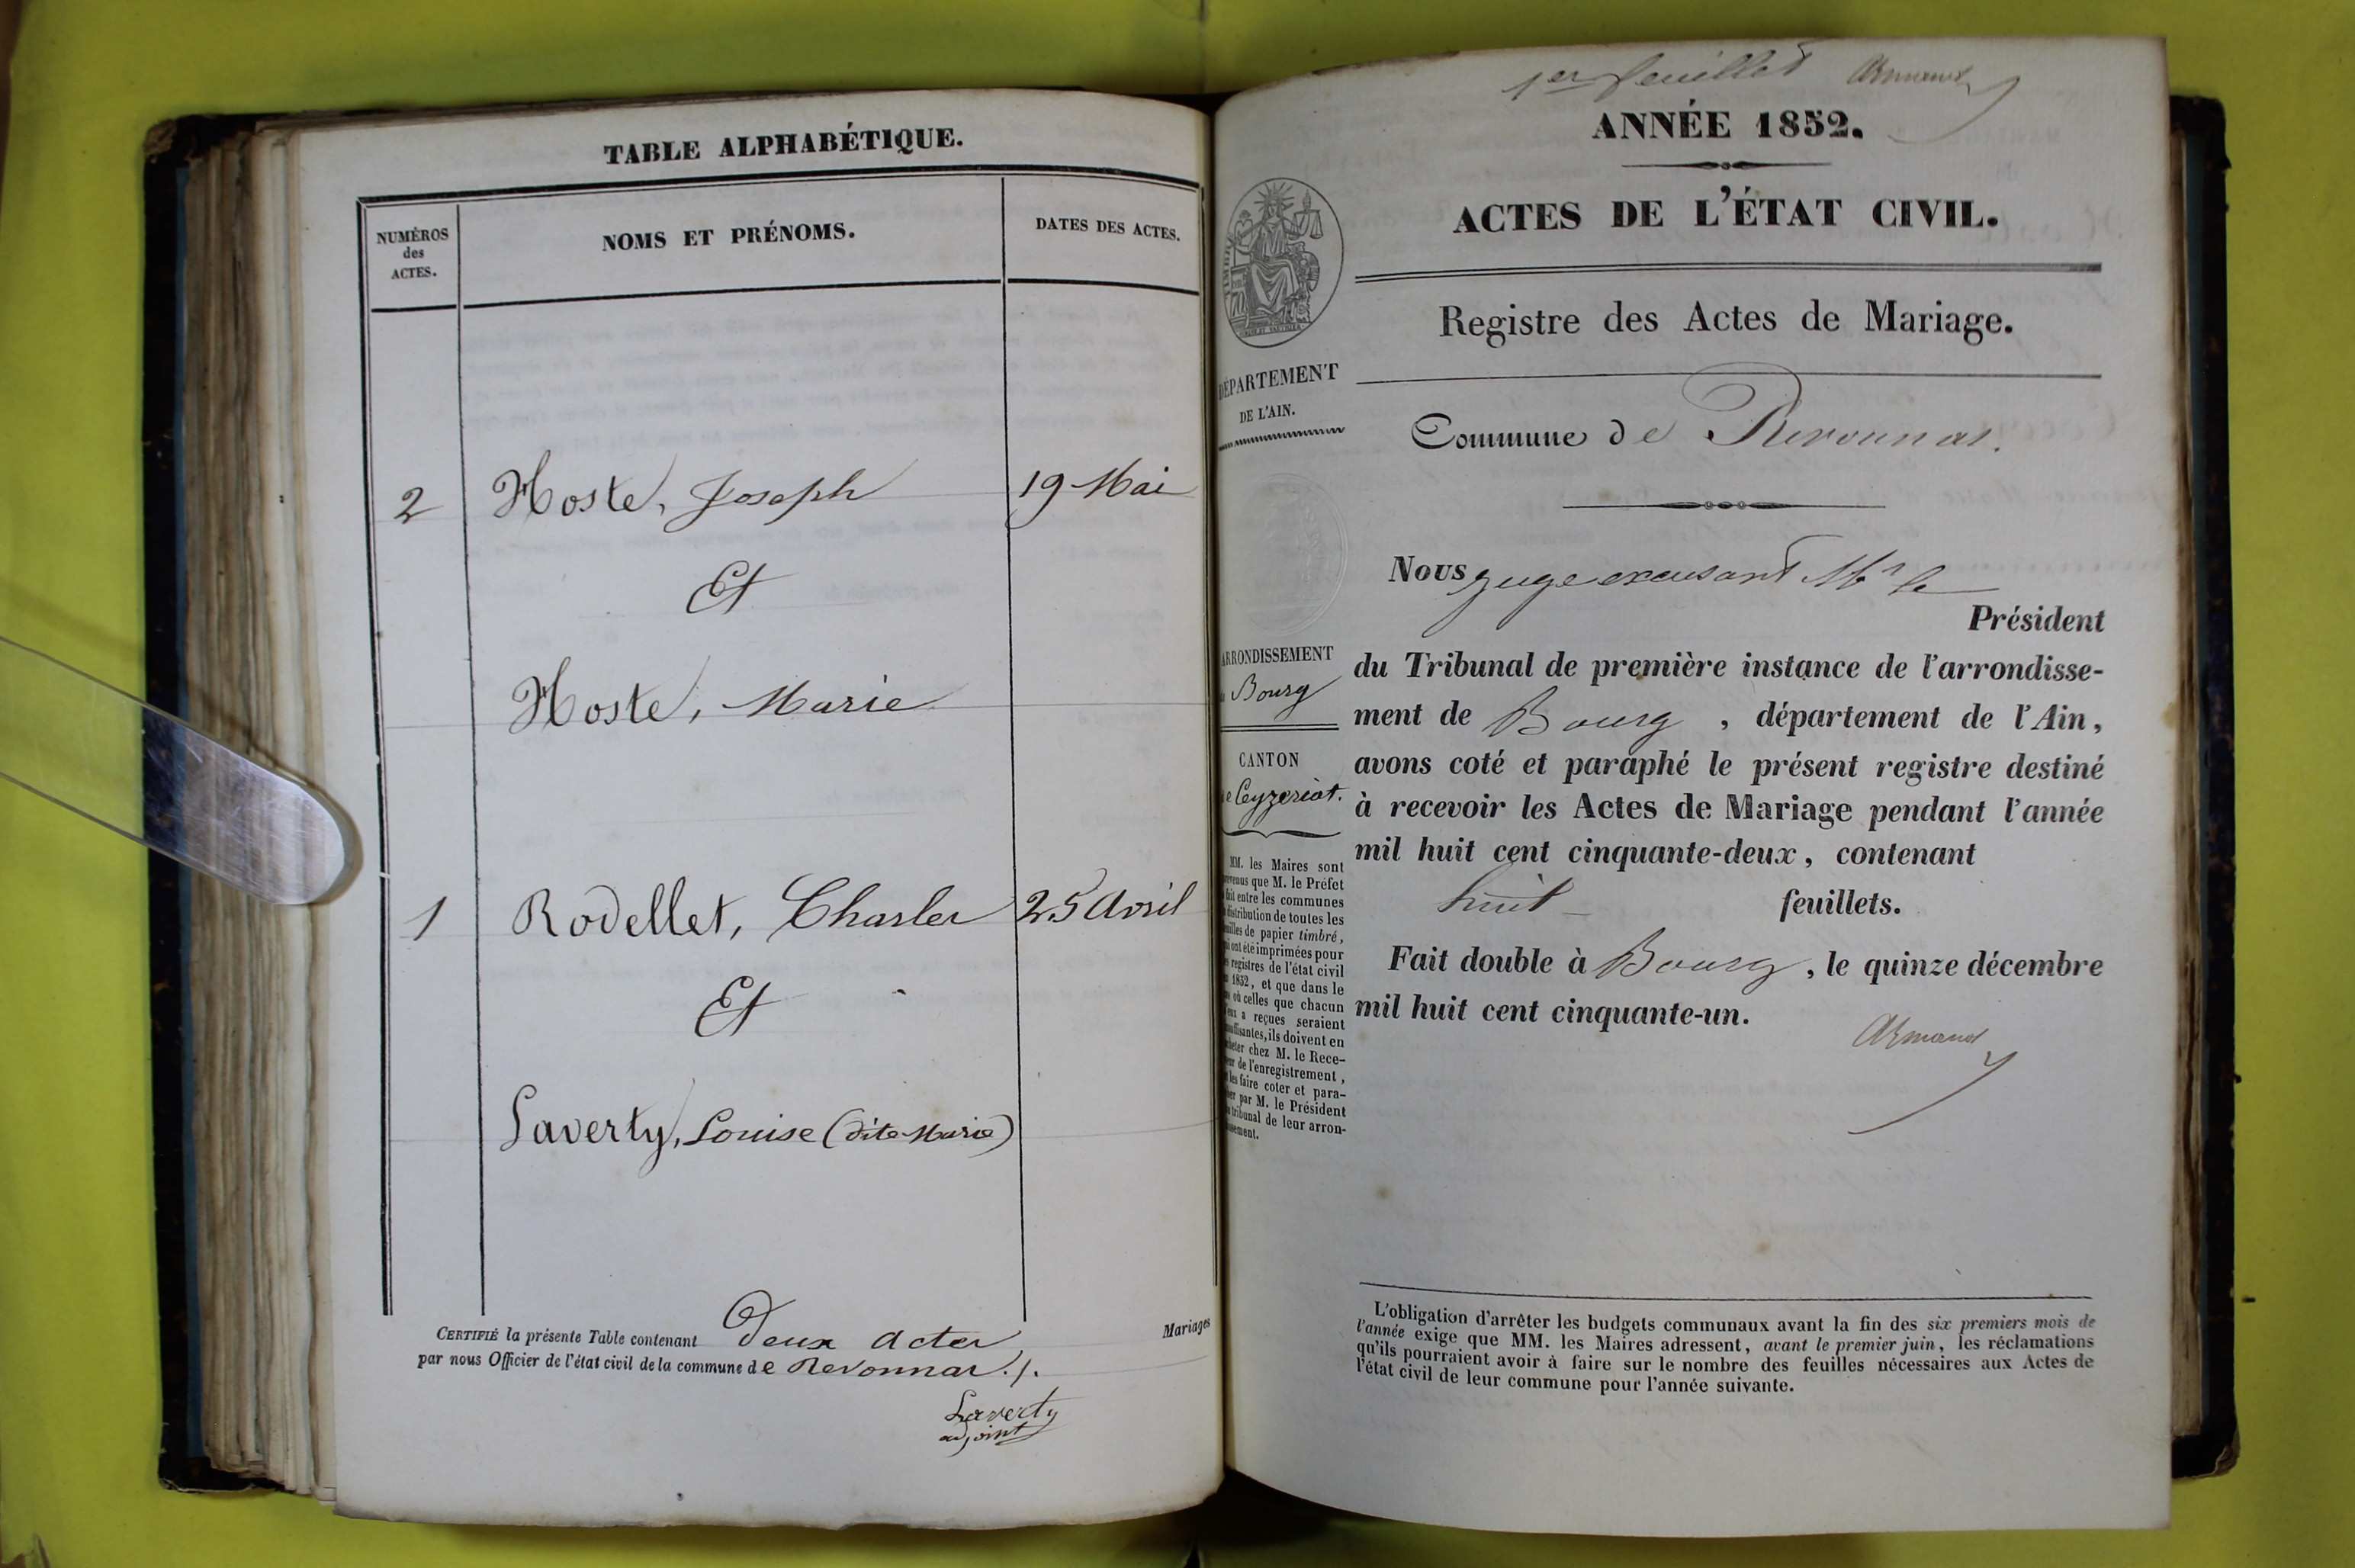 TABLE ALPHABÉTIQUE.
NUMÉROS
des
ACTES.
NOMS ET PRÉNOMS.
DATES DES ACTES.
2 Hoste, Joseph 19 Mai
Et
Hoste, Marie
1 Rodellet, Charles 25 Avril
Et
Laverty, Louise (dite Marie)
CERTIFIÉ la présente Table contenant Deux actes Mariages
par nous Officier de l'état civil de la commune de Revonnas ./.
Laverty
adjoint
1er feuillet Armand
ANNÉE 1852.
ACTES DE L'ÉTAT CIVIL.
Registre des Actes de Mariage.
DÉPARTEMENT
DE L'AIN.
Commune de Revonnas.
Nous juge excusant Mr le
Président
du Tribunal de première instance de l'arrondisse-
ment de Bourg, département de l'Ain,
avons coté et paraphé le présent registre destiné
à recevoir les Actes de Mariage pendant l'année
mil huit cent cinquante-deux, contenant
huit feuillets.
Fait double à Bourg, le quinze décembre
mil huit cent cinquante-un.
Armand
ARRONDISSEMENT
Bourg
CANTON
Ceyzeriat.
MM. les Maires sont
que M. le Préfet
entre les communes
distribution de toutes les
de papier timbré,
ont été imprimées pour
registres de l'état civil
1852, et que dans le
où celles que chacun
a reçues seraient
ils doivent en
chez M. le Rece-
de l'enregistrement,
les faire coter et para-
par M. le Président
tribunal de leur arron-
L'obligation d'arrêter les budgets communaux avant la fin des six premiers mois de
l'année exige que MM. les Maires adressent, avant le premier juin, les réclamations
qu'ils pourraient avoir à faire sur le nombre des feuilles nécessaires aux Actes de
l'état civil de leur commune pour l'année suivante.